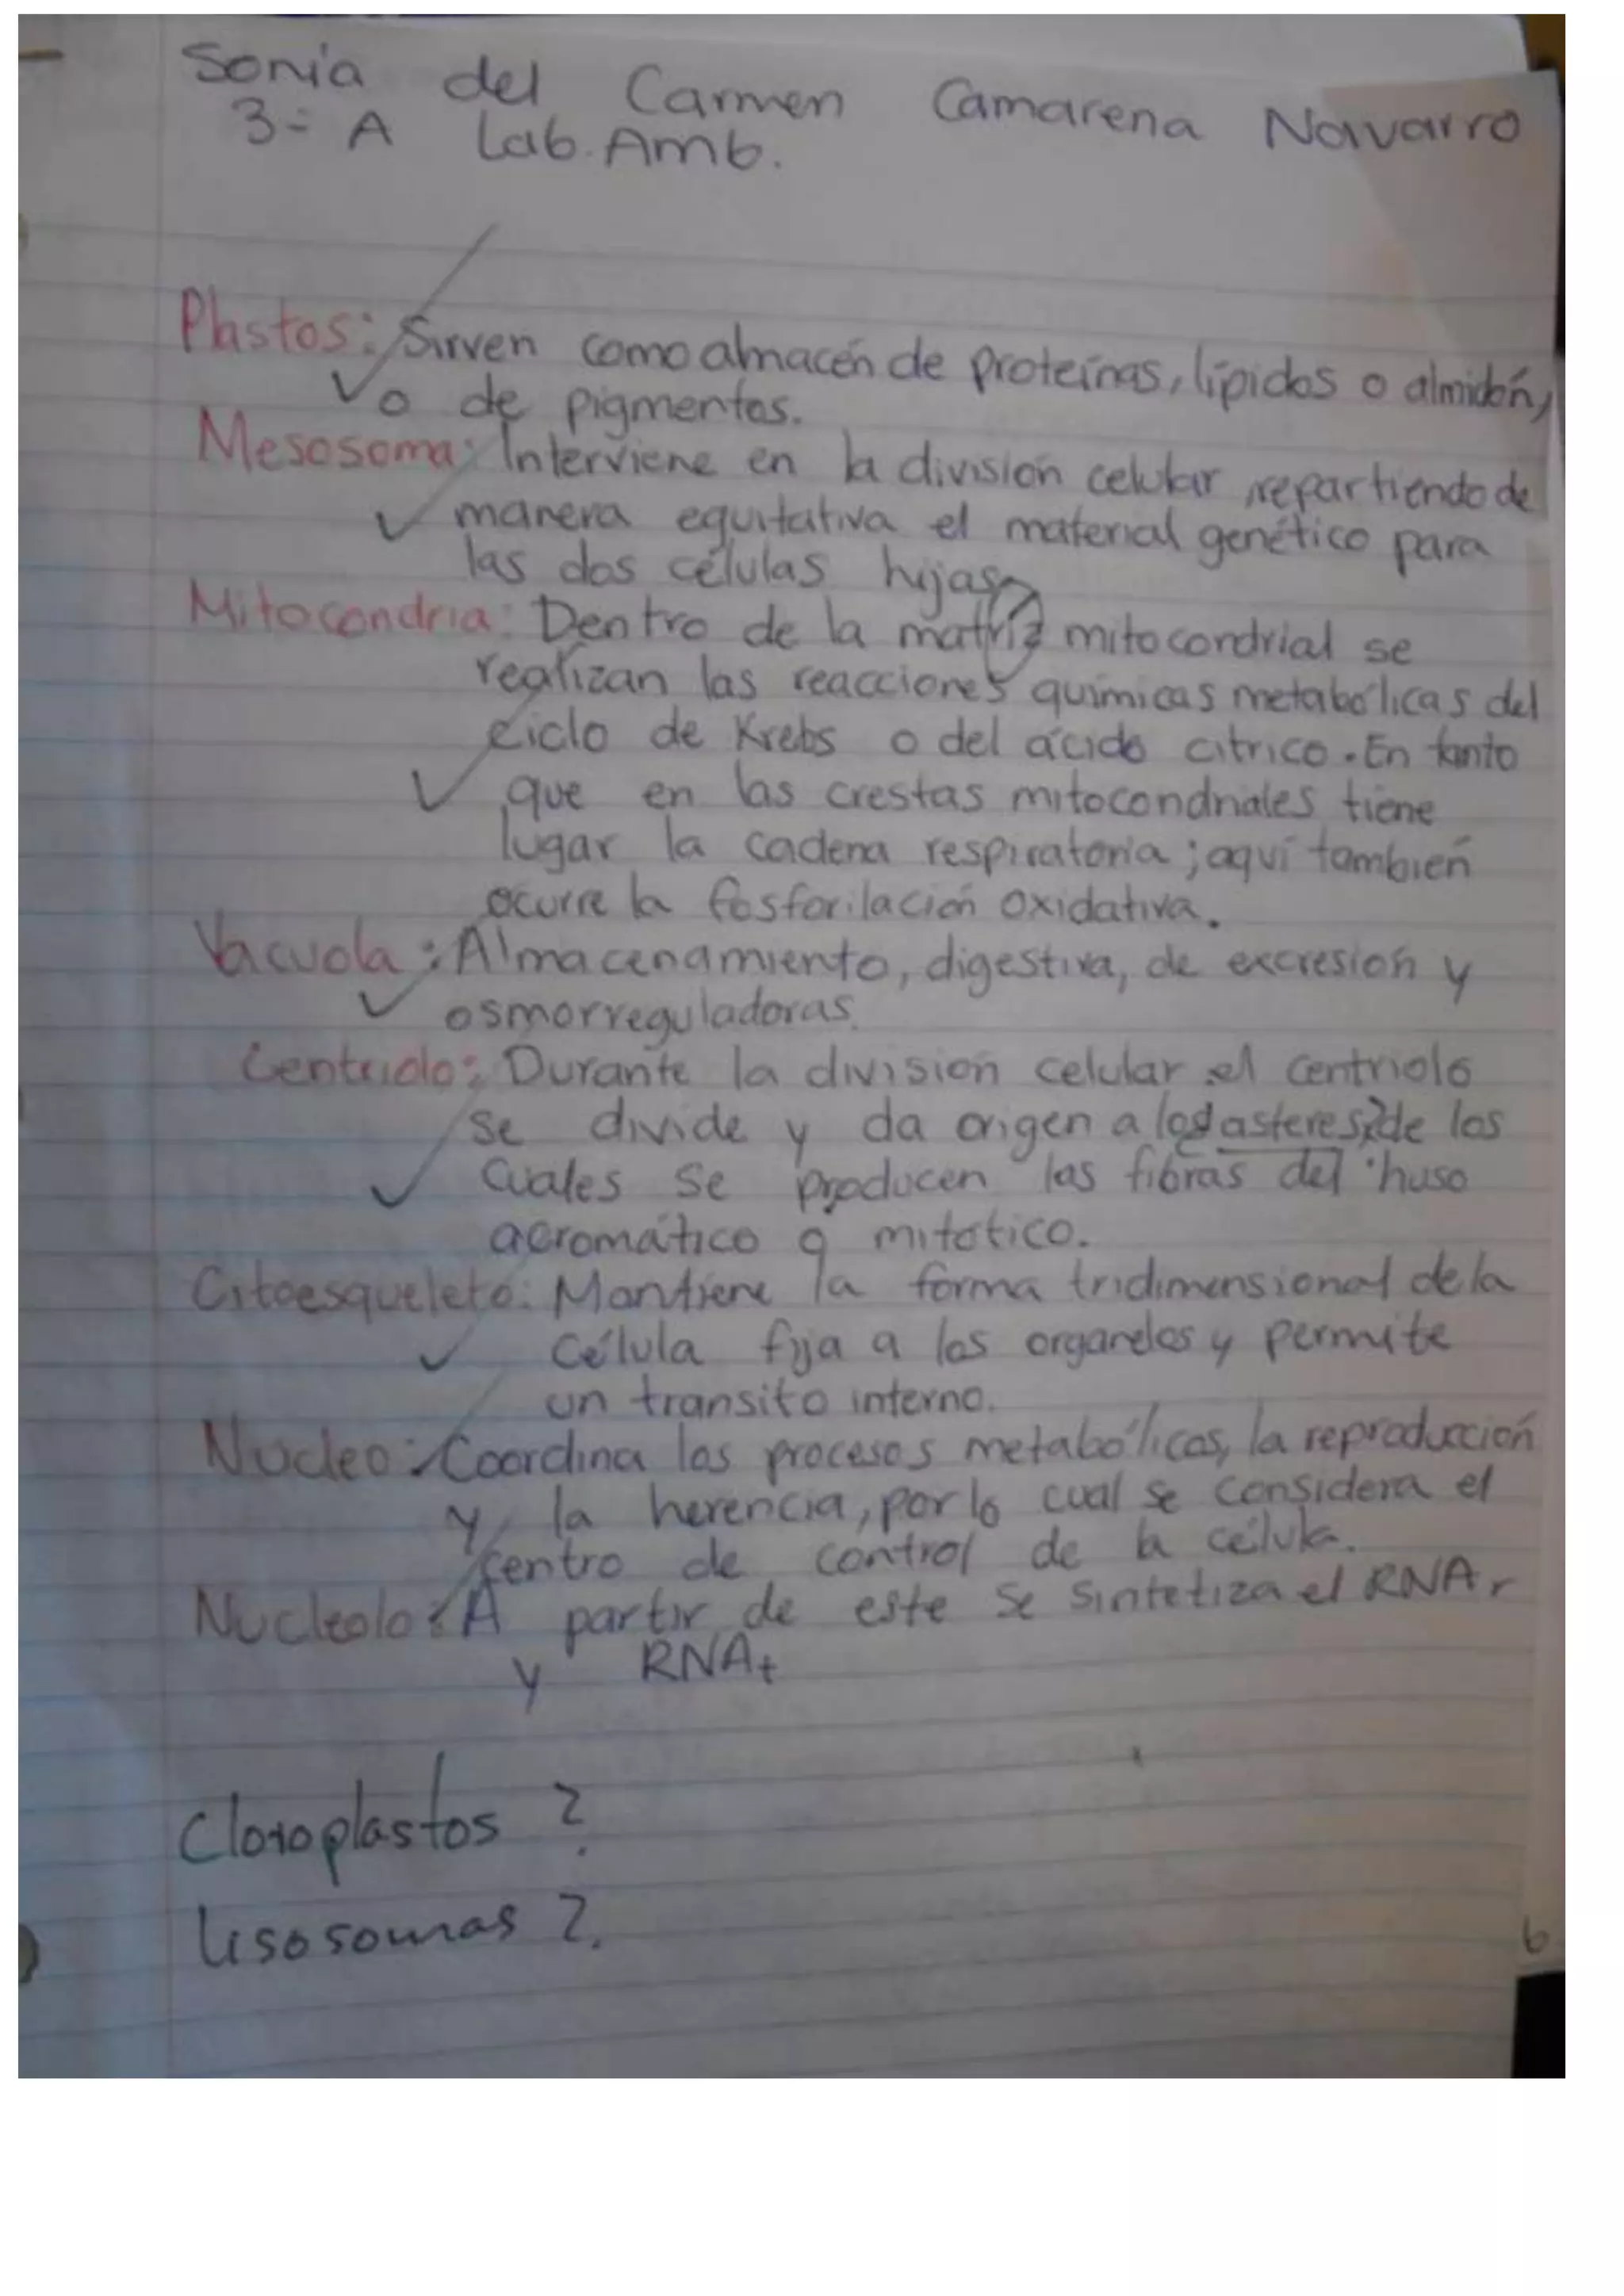 Sonia del Carmen Camarena Navarro
3= A Lab. Amb.
Plastos: Sirven como almacén de proteínas, lípidos o almidón,
o de pigmentos.
Mesosoma: Interviene en la división celular, repartiendo de
manera equitativa el material genético para
las dos células hijas
Mitocondria: Dentro de la matriz mitocondrial se
realizan las reacciones químicas metabólicas del
ciclo de Krebs o del ácido citrico. En tanto
que en las crestas mitocondriales tiene
lugar la cadena respiratoria; aquí también
ocurre la fosforilación oxidativa.
Vacuola: Almacenamiento, digestiva, de excresión y
osmorreguladoras.
Centriolo: Durante la división celular el centriolo
se divide y da origen a los asteres de los
cuales se producen las fibras del huso
acromático o mitótico.
Citoesqueleto: Mantiene la forma tridimensional de la
célula fija a los organelos y permite
un transito interno.
Nucleo: Coordina los procesos metabólicos, la reproducción
y la herencia, por lo cual se considera el
centro de control de la célula.
Nucleolo: A partir de este se sintetiza el RNAr
y RNAt
Cloroplastos ?
Lisosomas ?.
6